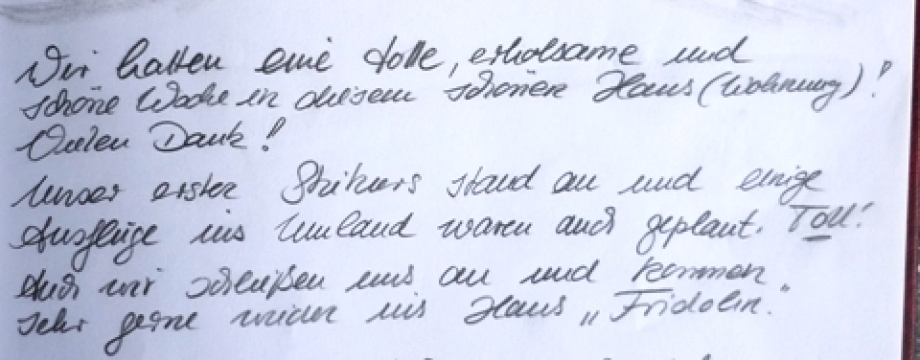 Wir hatten eine tolle, erholsame und
schöne Woche in diesem schönen Haus (Wohnung)!
Vielen Dank!
Unser erster Skikurs stand an und einige
Ausflüge ins Umland waren auch geplant. Toll!
Auch wir schließen uns an und kommen
sehr gerne wieder ins Haus „Fridolin."